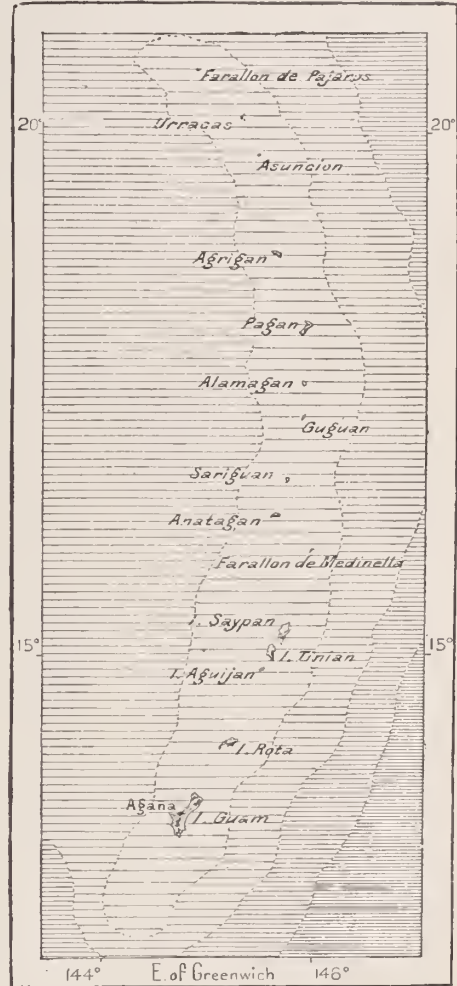 Farallon de Pajaros
20°
20°
Urracas
Asuncion
Agrigan
Pagan
Alamagan
Guguan
Sariguan
Anatagan
Farallon de Medinella
I. Saypan
15°
I. Tinian
15°
I. Aguijan
I. Rota
Agana
I. Guam
144° E. of Greenwich 146°